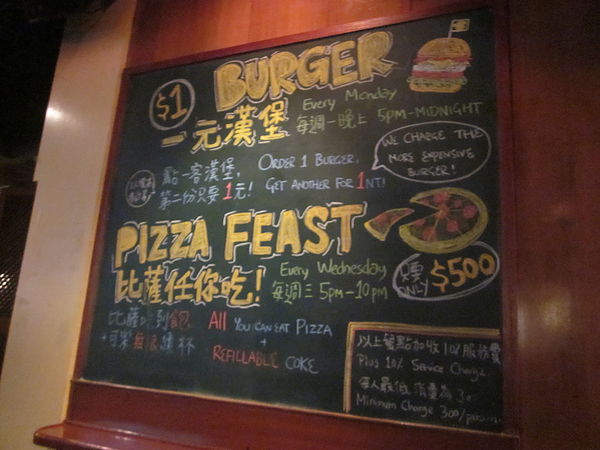 $1 BURGER
一元漢堡
Every Monday
每週一晚上 5PM-MIDNIGHT
點一客漢堡,
第二份只要1元!
ORDER 1 BURGER,
GET ANOTHER FOR 1NT!
WE CHARGE THE
MORE EXPENSIVE
BURGER!
PIZZA FEAST
比薩任你吃!
Every Wednesday
每週三 5PM-10PM
只要
ONLY $500
比薩吃到飽
+可樂無限續杯
All YOU CAN EAT PIZZA
+
REFILLABLE COKE
以上餐點加收10%服務費
Plus 10% Service Charge.
每人最低消費為
Minimum Charge 300/person